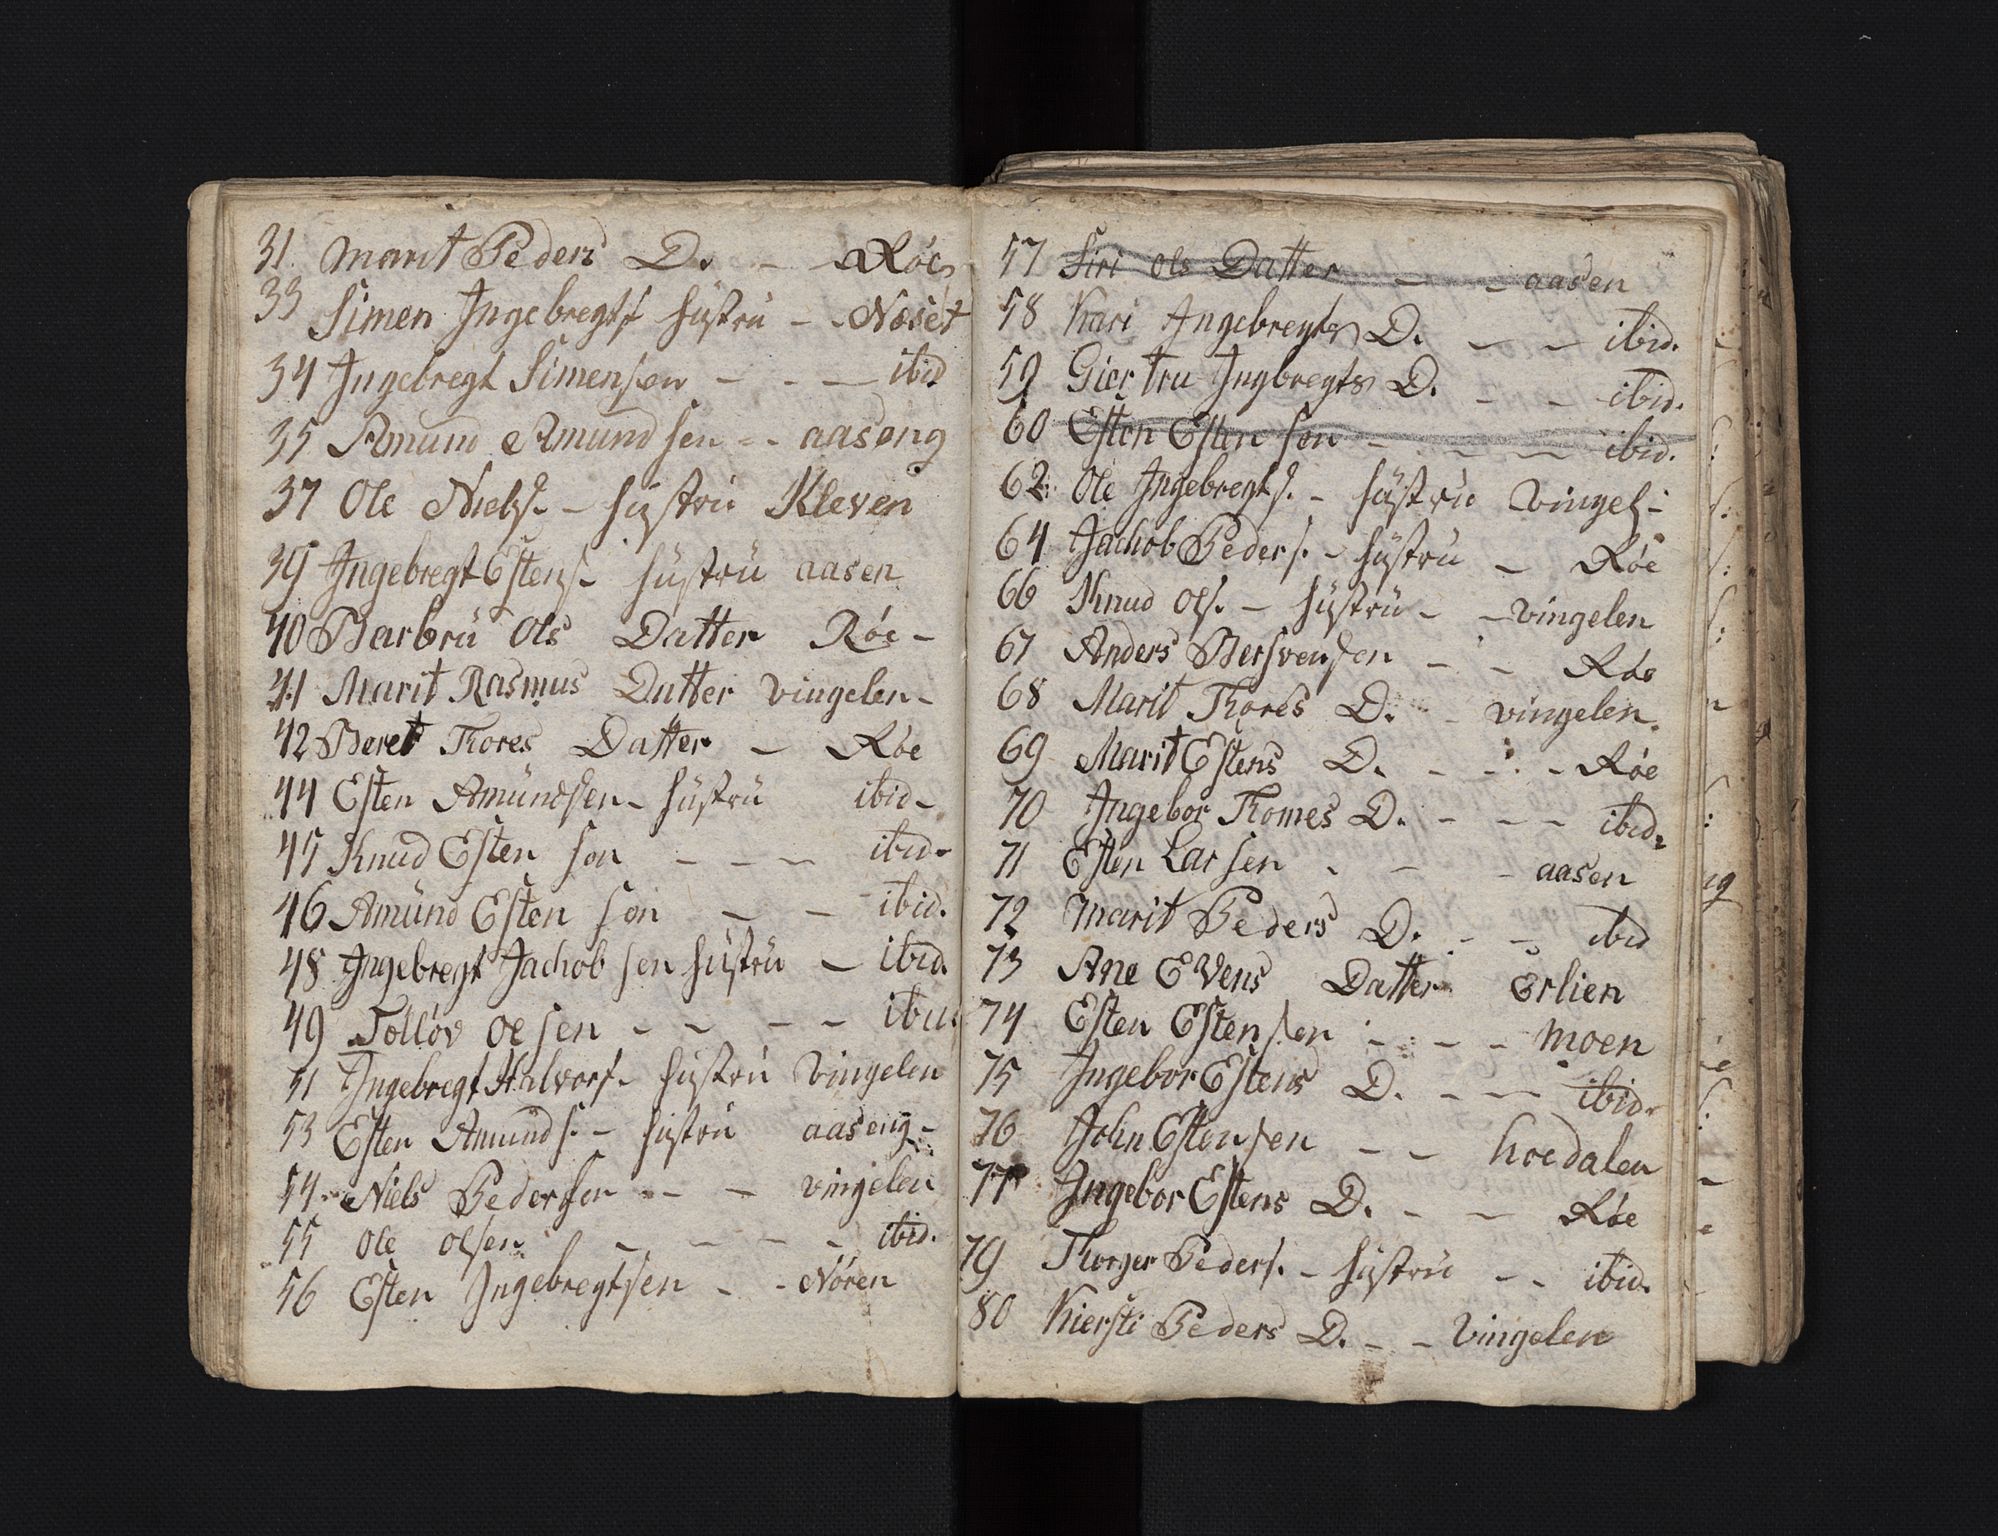 31 Marit Peders D. - Røe
33 Simen Ingebregts hustru - - Noset
34 Ingebregt Simensen - - - ibid
35 Amund Amundsen - - aaseng
37 Ole Niels. - hustru Kleven
39 Ingebregt Estens. hustrü aasen
40 Barbrü Ols Datter Røe -
41 Marit Rasmus Datter vingelen -
42 Beret Thores Datter - Røe
44 Esten Amündsen - hüstrü ibid -
45 Knud Esten sen - - - ibid -
46 Amünd Esten sen - - ibid.
48 Ingebregt Jachob sen hüstrü - ibid.
49 Tolløv oe sen - - - - ibid.
51 Ingebregt Halvors. hustru Vingelen
53 Esten Amunds. - hustru aaseng -
54. Niels Pedersen - - - vingelen
55 Ole olsen - - - - ibid.
56 Esten Ingebregtsen - - Nøren
57 Siri Ols Datter - - aasen
58 Kari Ingebregts D. - - ibid.
59 Giertru Ingbregts D. - - ibid.
60 Esten Esten sen - - - - ibid.
62 Ole Ingebregts. - hüstru vingel. -
64 Jachob Peders. - hüstru - Røe
66 Knud Ols. - hüstrü - - vingelen
67 Anders Bersvensen - - Røe
68 Marit Thores D. - vingelen.
69 Marit Estens D. - - - Røe
70 Ingebor Thomes D. - - - ibid.
71 Esten Larsen - - - aasen
72 Marit Peders D. - - ibid
73 Ane Evens Datter Erlien
74 Esten Estensen - - - - moen
75 Ingebor Estens D. - - - ibid.
76 John Estensen - - hoedalen
77 Ingebor Estens D. - - Røe
79 Thorger Peders. - hustru - - ibid.
80 Kiersti Peders D. - - Vingelen